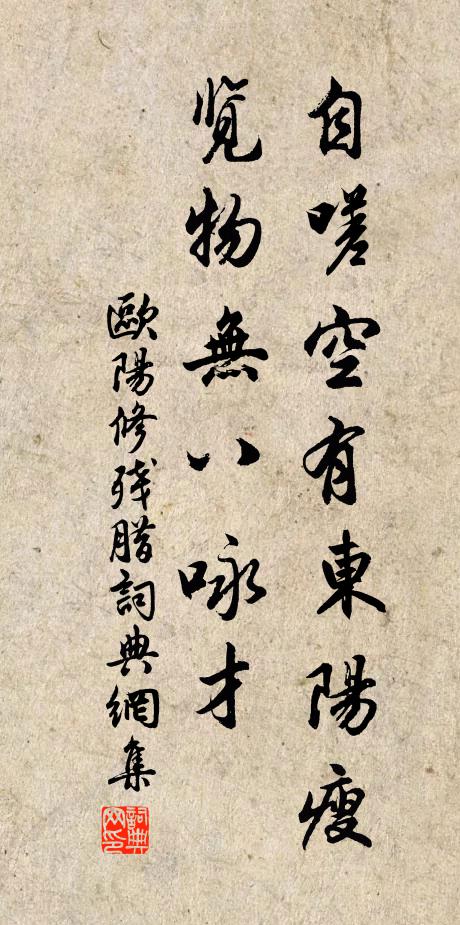 自嗟空有東陽瘦
覽物無八咏才
歐陽修殘腊詞典網集
詞典網印